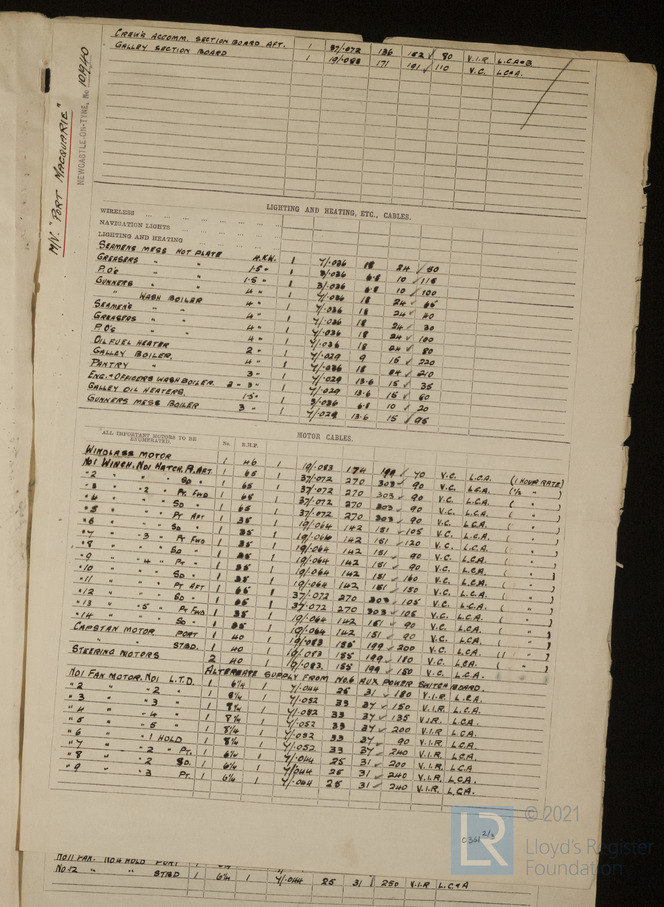 M/V. "PORT MACQUARIE"
NEWCASTLE-ON-TYNE, No 101940
CREW'S ACCOMM. SECTION BOARD AFT. 1 37/.072 136 152 80 V.I.R L.C.A&B
GALLEY SECTION BOARD 1 19/.083 171 191 110 V.C. L.C&A.
LIGHTING AND HEATING, ETC., CABLES.
WIRELESS
NAVIGATION LIGHTS
LIGHTING AND HEATING
SEAMENS MESS HOT PLATE 4.KW. 1 7/.036 18 24 50
GREASERS " " 1.5 " 1 3/.036 6.8 10 115
P.O's " " 1.5 " 1 3/.036 6.8 10 100
GUNNERS " " 4 " 1 7/.036 18 24 65
" WASH BOILER 4 " 1 7/.036 18 24 40
SEAMEN'S " " 4 " 1 7/.036 18 24 30
GREASERS " " 4 " 1 7/.036 18 24 100
P.O's " " 4 " 1 7/.036 18 24 80
OIL FUEL HEATER 2 " 1 7/.029 9 15 220
GALLEY BOILER. 4 " 1 7/.036 18 24 210
PANTRY " 3 " 1 7/.029 13.6 15 35
ENG. & OFFICERS WASH BOILER. 2 = 3 " 1 7/.029 13.6 15 60
GALLEY OIL HEATERS. 1.5 " 1 3/.036 6.8 10 20
GUNNERS MESS BOILER 3 " 1 7/.029 13.6 15 95
ALL IMPORTANT MOTORS TO BE ENUMERATED. No. B.H.P. MOTOR CABLES.
WINDLASS MOTOR 1 46 1 19/.083 174 199 70 V.C. L.C.A. (1 HOUR RATE)
No1 WINCH. No1 HATCH. Pt. AFT 1 65 1 37/.072 270 303 90 V.C. L.C.A. (1/2 " )
" 2 " " " SD " 1 65 1 37/.072 270 303 90 V.C. L.C.A. ( " )
" 3 " " 2 " Pt FWD 1 65 1 37/.072 270 303 90 V.C. L.C.A. ( " )
" 4 " " " SD " 1 65 1 37/.072 270 303 90 V.C. L.C.A. ( " )
" 5 " " " Pt AFT 1 35 1 19/.064 142 151 105 V.C. L.C.A. ( " )
" 6 " " " SD " 1 35 1 19/.064 142 151 120 V.C. L.C.A. ( " )
" 7 " " 3 " Pt FWD 1 35 1 19/.064 142 151 90 V.C. L.C.A. ( " )
" 8 " " " SD " 1 35 1 19/.064 142 151 90 V.C. L.C.A. ( " )
" 9 " " 4 " Pt " 1 35 1 19/.064 142 151 160 V.C. L.C.A. ( " )
" 10 " " " SD " 1 35 1 19/.064 142 151 150 V.C. L.C.A. ( " )
" 11 " " " Pt AFT 1 65 1 37/.072 270 303 105 V.C. L.C.A. ( " )
" 12 " " " SD " 1 65 1 37/.072 270 303 105 V.C. L.C.A. ( " )
" 13 " " 5 " Pt FWD 1 35 1 19/.064 142 151 90 V.C. L.C.A. ( " )
" 14 " " " SD " 1 35 1 19/.064 142 151 90 V.C. L.C.A. ( " )
CAPSTAN MOTOR PORT 1 40 1 19/.083 185 199 200 V.C. L.C.A. (1 " )
" " STBD. 1 40 1 19/.083 185 199 180 V.C. L.C.A. ( " )
STEERING MOTORS 2 40 1 19/.083. 185 199 150 V.C. L.C.A.
ALTERNATE SUPPLY FROM No.6 AUX POWER SWITCH BOARD.
No1 FAN MOTOR. No1 L.T.D. 1 6¼ 1 7/.044 25 31 180 V.I.R. L.C.A.
" 2 " " 2 " 1 8¼ 1 7/.052 33 37 150 V.I.R. L.C.A.
" 3 " " 3 " 1 8¼ 1 7/.052 33 37 135 V.I.R. L.C.A.
" 4 " " 4 " 1 8¼ 1 7/.052 33 37 200 V.I.R L.C.A.
" 5 " " 5 " 1 8¼ 1 7/.052 33 37 90 V.I.R. L.C.A.
" 6 " " 1 HOLD 1 8¼ 1 7/.052 33 37 240 V.I.R. L.C.A.
" 7 " " 2 " Pt. 1 6¼ 1 7/.044 25 31 200 V.I.R. L.C.A
" 8 " " 2 SD. 1 6¼ 1 7/.044 25 31 240 V.I.R. L.C.A.
" 9 " " 3 Pt. 1 6¼ 1 7/.064 25 31 240 V.I.R. L.C.A.
0361 2/3
No11 FAN. No.4 HOLD PORT 1
No.12 " " STBD 1 6¼ 1 7/.044 25 31 250 V.I.R L.C&A
© 2021
LR
Lloyd's Register
Foundation